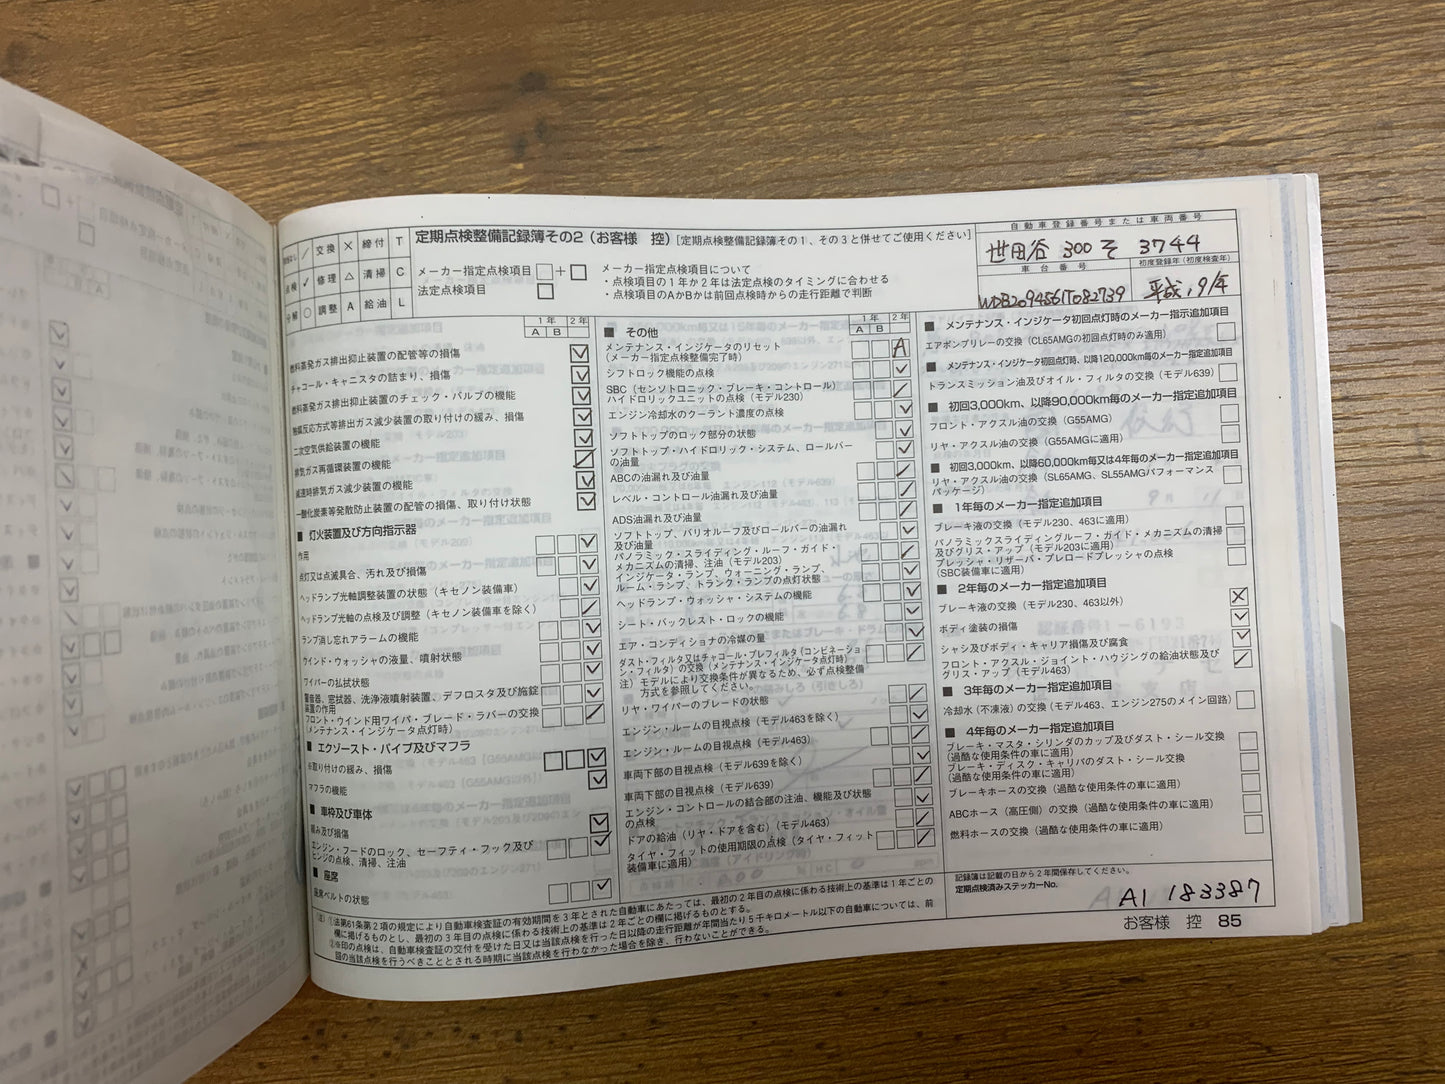 ／ 交換 ✕ 締付 T
点検 ✓ 修理 △ 清掃 C
分解 ○ 調整 A 給油 L
定期点検整備記録簿その2（お客様 控）［定期点検整備記録簿その1、その3と併せてご使用ください］
メーカー指定点検項目 □＋□
法定点検項目 □
メーカー指定点検項目について
・点検項目の1年か2年は法定点検のタイミングに合わせる
・点検項目のAかBかは前回点検時からの走行距離で判断
自動車登録番号または車両番号
世田谷 300 そ 3744
車台番号
初度登録年（初度検査年）
WDB2094561T082739
平成19年
1年 2年
A B
燃料蒸発ガス排出抑止装置の配管等の損傷
チャコール・キャニスタの詰まり、損傷
燃料蒸発ガス排出抑止装置のチェック・バルブの機能
触媒反応方式等排出ガス減少装置の取り付けの緩み、損傷
二次空気供給装置の機能
排気ガス再循環装置の機能
減速時排気ガス減少装置の機能
一酸化炭素等発散防止装置の配管の損傷、取り付け状態
■ 灯火装置及び方向指示器
作用
点灯又は点滅具合、汚れ及び損傷
ヘッドランプ光軸調整装置の状態（キセノン装備車）
ヘッドランプ光軸の点検及び調整（キセノン装備車を除く）
ランプ消し忘れアラームの機能
ウインド・ウォッシャの液量、噴射状態
ワイパーの払拭状態
警音器、窓拭器、洗浄液噴射装置、デフロスタ及び施錠
装置の作用
フロント・ウインド用ワイパ・ブレード・ラバーの交換
（メンテナンス・インジケータ点灯時）
■ エクゾースト・パイプ及びマフラ
※取り付けの緩み、損傷
マフラの機能
■ 車枠及び車体
緩み及び損傷
エンジン・フードのロック、セーフティ・フック及び
ヒンジの点検、清掃、注油
■ 座席
座席ベルトの状態
1年 2年
A B
■ その他
メンテナンス・インジケータのリセット
（メーカー指定点検整備完了時） A
シフトロック機能の点検
SBC（センソトロニック・ブレーキ・コントロール）
ハイドロリックユニットの点検（モデル230）
エンジン冷却水のクーラント濃度の点検
ソフトトップのロック部分の状態
ソフトトップ・ハイドロリック・システム、ロールバー
の油量
ABCの油漏れ及び油量
レベル・コントロール油漏れ及び油量
ADS油漏れ及び油量
ソフトトップ、バリオルーフ及びロールバーの油漏れ
及び油量
パノラミック・スライディング・ルーフ・ガイド・
メカニズムの清掃、注油（モデル203）
インジケータ・ランプ、ウォーニング・ランプ、
ルーム・ランプ、トランク・ランプの点灯状態
ヘッドランプ・ウォッシャ・システムの機能
シート・バックレスト・ロックの機能
エア・コンディショナの冷媒の量
ダスト・フィルタ又はチャコール・プレフィルタ（コンビネーショ
ン・フィルタ）の交換（メンテナンス・インジケータ点灯時）
注）モデルにより交換条件が異なるため、必ず点検整備
方式を参照してください。
リヤ・ワイパーのブレードの状態
エンジン・ルームの目視点検（モデル463を除く）
エンジン・ルームの目視点検（モデル463）
車両下部の目視点検（モデル639を除く）
車両下部の目視点検（モデル639）
エンジン・コントロールの結合部の注油、機能及び状態
の点検
ドアの給油（リヤ・ドアを含む）（モデル463）
タイヤ・フィットの使用期限の点検（タイヤ・フィット
装備車に適用）
■ メンテナンス・インジケータ初回点灯時のメーカー指示追加項目
エアポンプリレーの交換（CL65AMGの初回点灯時のみ適用）
■ メンテナンス・インジケータ初回点灯時、以降120,000km毎のメーカー指定追加項目
トランスミッション油及びオイル・フィルタの交換（モデル639）
■ 初回3,000km、以降90,000km毎のメーカー指定追加項目
フロント・アクスル油の交換（G55AMG）
リヤ・アクスル油の交換（G55AMGに適用）
■ 初回3,000km、以降60,000km毎又は4年毎のメーカー指定追加項目
リヤ・アクスル油の交換（SL65AMG、SL55AMGパフォーマンス
パッケージ）
■ 1年毎のメーカー指定追加項目
ブレーキ液の交換（モデル230、463に適用）
パノラミックスライディングルーフ・ガイド・メカニズムの清掃
及びグリス・アップ（モデル203に適用）
プレッシャ・リザーバ・プレロードプレッシャの点検
（SBC装備車に適用）
■ 2年毎のメーカー指定追加項目
ブレーキ液の交換（モデル230、463以外）
ボディ塗装の損傷
シャシ及びボディ・キャリア損傷及び腐食
フロント・アクスル・ジョイント・ハウジングの給油状態及び
グリス・アップ（モデル463）
■ 3年毎のメーカー指定追加項目
冷却水（不凍液）の交換（モデル463、エンジン275のメイン回路）
■ 4年毎のメーカー指定追加項目
ブレーキ・マスタ・シリンダのカップ及びダスト・シール交換
（過酷な使用条件の車に適用）
ブレーキ・ディスク・キャリパのダスト・シール交換
（過酷な使用条件の車に適用）
ブレーキホースの交換（過酷な使用条件の車に適用）
ABCホース（高圧側）の交換（過酷な使用条件の車に適用）
燃料ホースの交換（過酷な使用条件の車に適用）
記録簿は記載の日から2年間保存してください。
定期点検済みステッカーNo.
A1 183387
（注）①法第61条第2項の規定により自動車検査証の有効期間を3年とされた自動車にあたっては、最初の2年目の点検に係わる技術上の基準は1年ごとの
欄に掲げるものとし、最初の3年目の点検に係わる技術上の基準は2年ごとの欄に掲げるものとする。
②※印の点検は、自動車検査証の交付を受けた日又は当該点検を行った日以降の走行距離が年間当たり5千キロメートル以下の自動車については、前
回の当該点検を行うべきこととされる時期に当該点検を行わなかった場合を除き、行わないことができる。
お客様 控 85